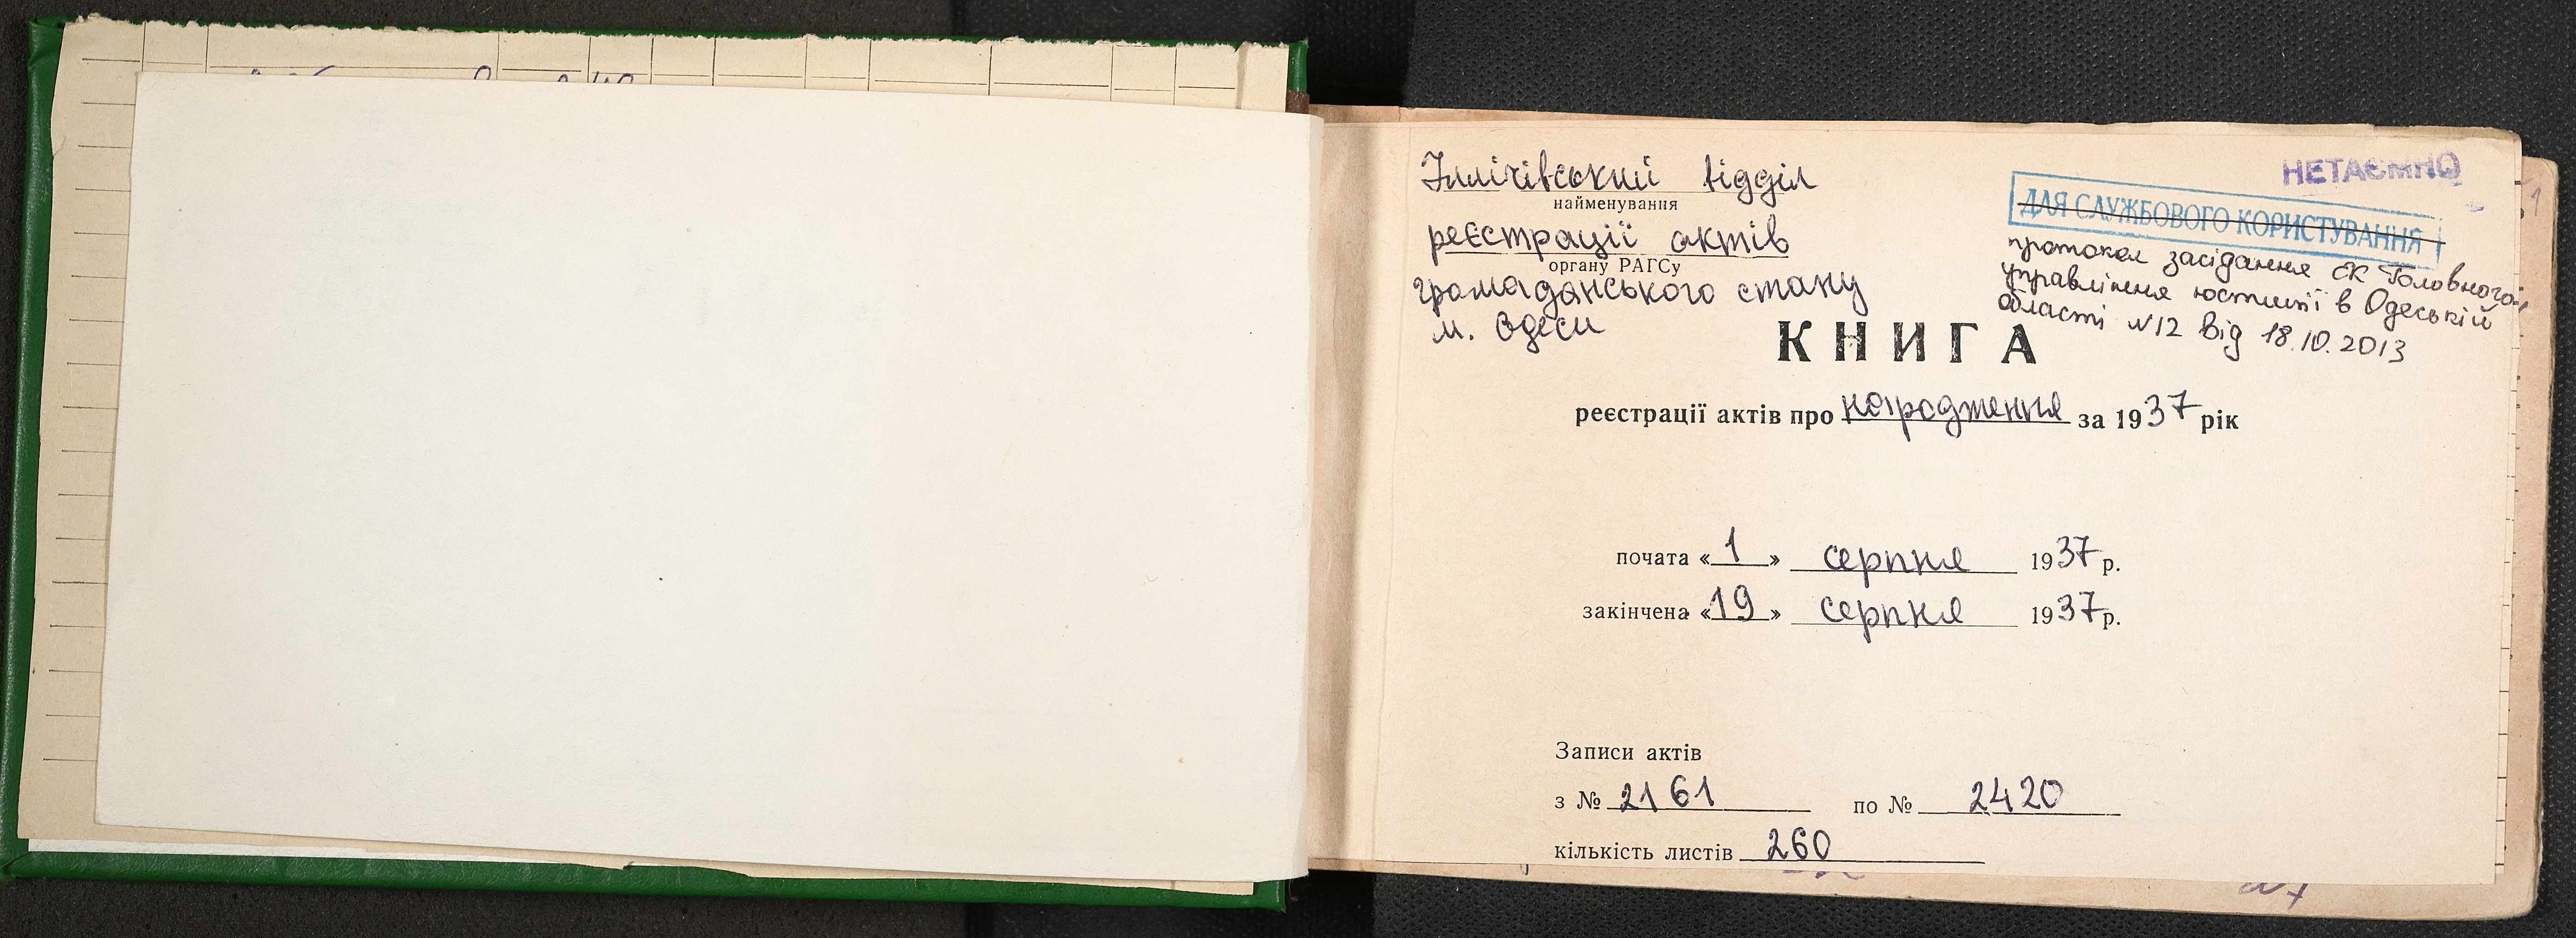 Іллічівський відділ
найменування
реєстрації актів
органу РАГСу
громадянського стану
м. Одеси
НЕТАЄМНО
ДЛЯ СЛУЖБОВОГО КОРИСТУВАННЯ
протокол засідання ЄК Головного
управління юстиції в Одеській
області №12 від 18.10.2013
1
КНИГА
реєстрації актів про народження за 1937 рік
почата «1» серпня 1937 р.
закінчена «19» серпня 1937 р.
Записи актів
з № 2161 по № 2420
кількість листів 260